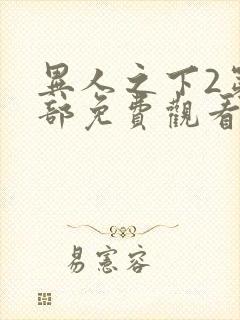 異人之下2
部免費觀看
易憲容